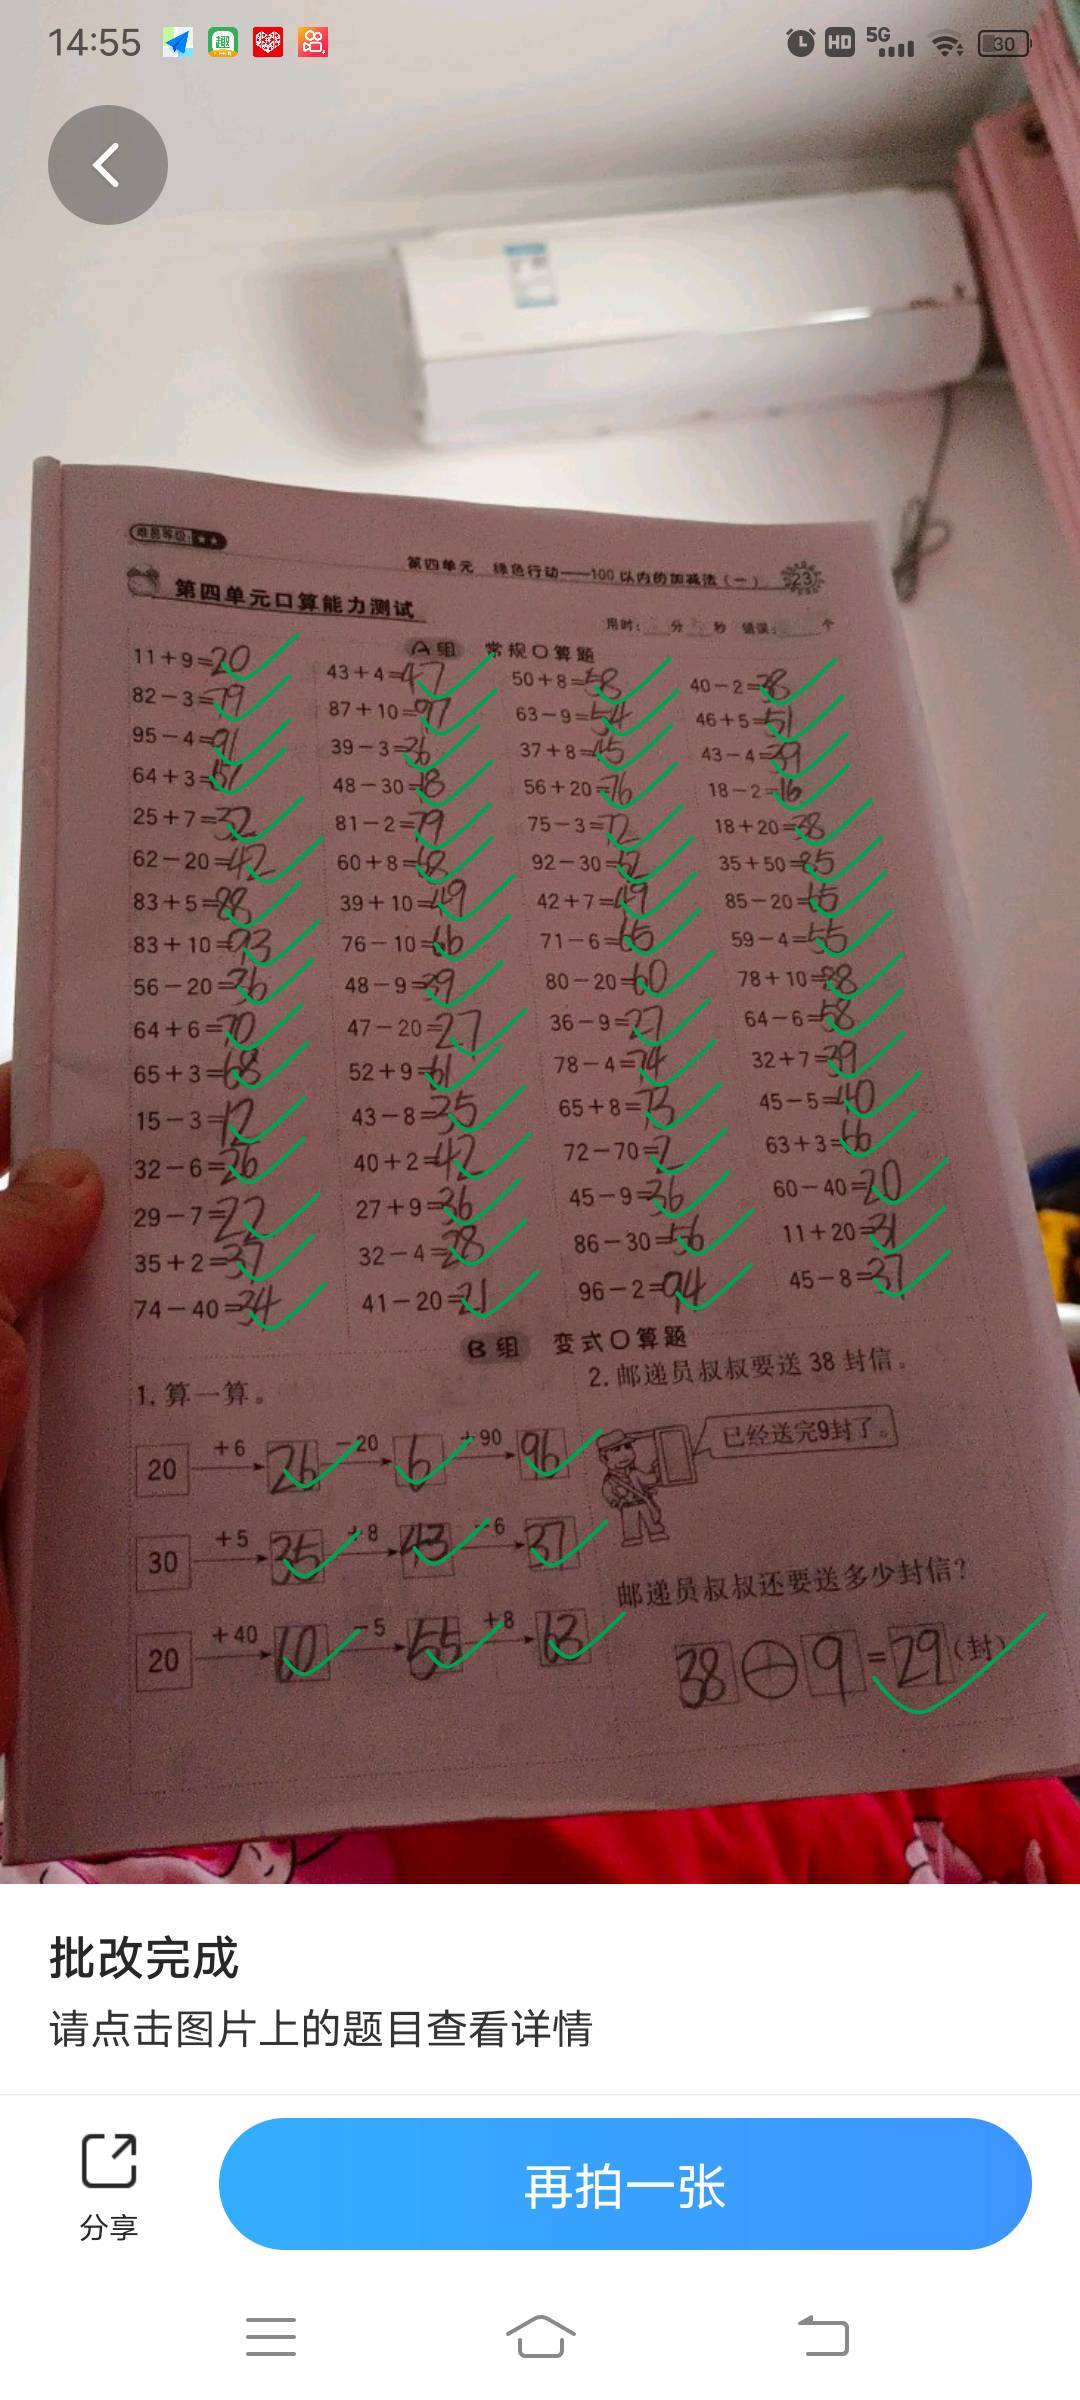 14:55
HD 5G 30
难易等级:★★
第四单元 绿色行动——100以内的加减法(一) 23
第四单元口算能力测试
用时: 分 秒 错误: 个
A组 常规口算题
11+9=20 43+4=47 50+8=58 40-2=38
82-3=79 87+10=97 63-9=54 46+5=51
95-4=91 39-3=36 37+8=45 43-4=39
64+3=67 48-30=18 56+20=76 18-2=16
25+7=32 81-2=79 75-3=72 18+20=38
62-20=42 60+8=68 92-30=62 35+50=85
83+5=88 39+10=49 42+7=49 85-20=65
83+10=93 76-10=66 71-6=65 59-4=55
56-20=36 48-9=39 80-20=60 78+10=88
64+6=70 47-20=27 36-9=27 64-6=58
65+3=68 52+9=61 78-4=74 32+7=39
15-3=12 43-8=35 65+8=73 45-5=40
32-6=26 40+2=42 72-70=2 63+3=66
29-7=22 27+9=36 45-9=36 60-40=20
35+2=37 32-4=28 86-30=56 11+20=31
74-40=34 41-20=21 96-2=94 45-8=37
B组 变式口算题
1.算一算。
20 +6 26 -20 6 +90 96
30 +5 35 +8 43 -6 37
20 +40 60 -5 55 +8 63
2.邮递员叔叔要送38封信。
已经送完9封了。
邮递员叔叔还要送多少封信?
38-9=29(封)
批改完成
请点击图片上的题目查看详情
分享
再拍一张